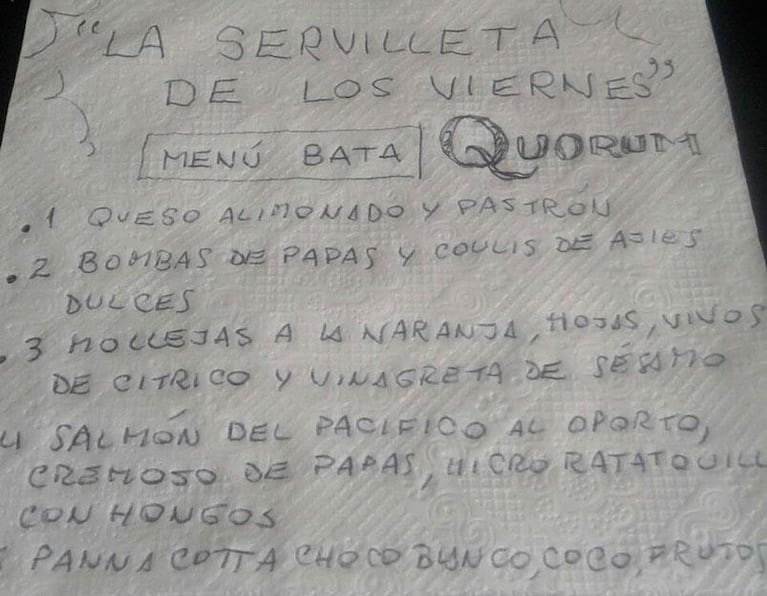 "LA SERVILLETA
DE LOS VIERNES"
MENÚ BATA QUORUM
.1 QUESO ALIMONADO Y PASTRÓN
.2 BOMBAS DE PAPAS Y COULIS DE AJIES
DULCES
.3 MOLLEJAS A LA NARANJA, HOJAS, VIVOS
DE CITRICO Y VINAGRETA DE SÉSAMO
4 SALMÓN DEL PACIFICO AL OPORTO,
CREMOSO DE PAPAS, MICRO RATATOUILL
CON HONGOS
PANNA COTTA CHOCO BLANCO, COCO, FRUTOS